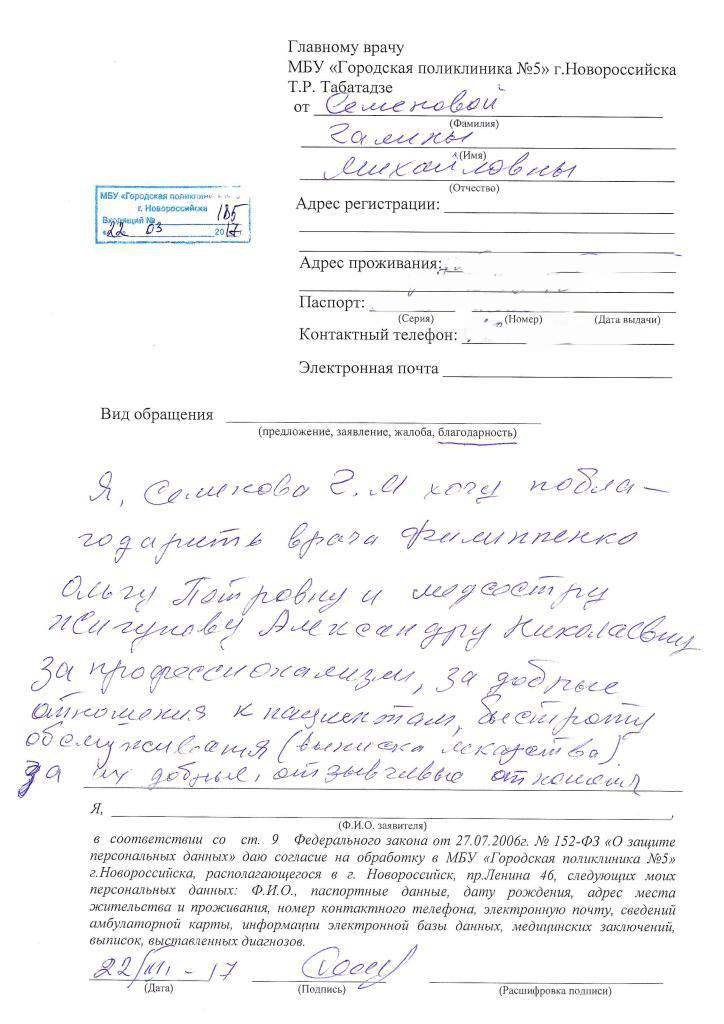 Главному врачу
МБУ «Городская поликлиника №5» г.Новороссийска
Т.Р. Табатадзе
от Семеновой
(Фамилия)
Галины
(Имя)
Михайловны
(Отчество)
МБУ «Городская поликлиника
г. Новороссийска
Входящий № 185
«22 03 2017г.
Адрес регистрации:
Адрес проживания:
Паспорт:
(Серия) (Номер) (Дата выдачи)
Контактный телефон:
Электронная почта
Вид обращения
(предложение, заявление, жалоба, благодарность)
Я, Семенова Г.М хочу побла-
годарить врача Филиппенко
Ольгу Петровну и медсестру
Жигунову Александру Николаевну
за профессионализм, за добрые
отношения к пациентам, быстроту
обслуживания (выписка лекарства)
за их добрые, отзывчивые отношения
Я,
(Ф.И.О. заявителя)
в соответствии со ст. 9 Федерального закона от 27.07.2006г. № 152-ФЗ «О защите
персональных данных» даю согласие на обработку в МБУ «Городская поликлиника №5»
г.Новороссийска, располагающегося в г. Новороссийск, пр.Ленина 46, следующих моих
персональных данных: Ф.И.О., паспортные данные, дату рождения, адрес места
жительства и проживания, номер контактного телефона, электронную почту, сведений
амбулаторной карты, информации электронной базы данных, медицинских заключений,
выписок, выставленных диагнозов.
22/III - 17
(Дата) (Подпись) (Расшифровка подписи)